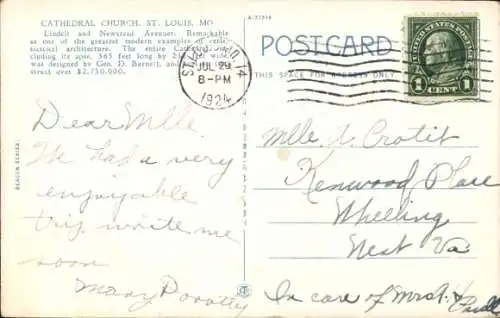 CATHEDRAL CHURCH, ST. LOUIS, MO
Lindell and Newstead Avenues. Remarkable
as one of the greatest modern examples of
architecture. The entire
its apse, 365 feet long by
was designed by Geo. D. Barnett, and
struct over $2,750,000.
BEACON SERIES
POSTCARD
THIS SPACE FOR ADDRESS ONLY
ST. MO. 14
JUL 29
8-PM
1924
UNITED STATES POSTAGE
1 CENT 1
Dear Mlle.
We had a very
enjoyable
trip write me
soon
Mary Dorothy
Mlle. A. Crotit
Kenwood Place
Wheeling
West Va
In care of Mrs.